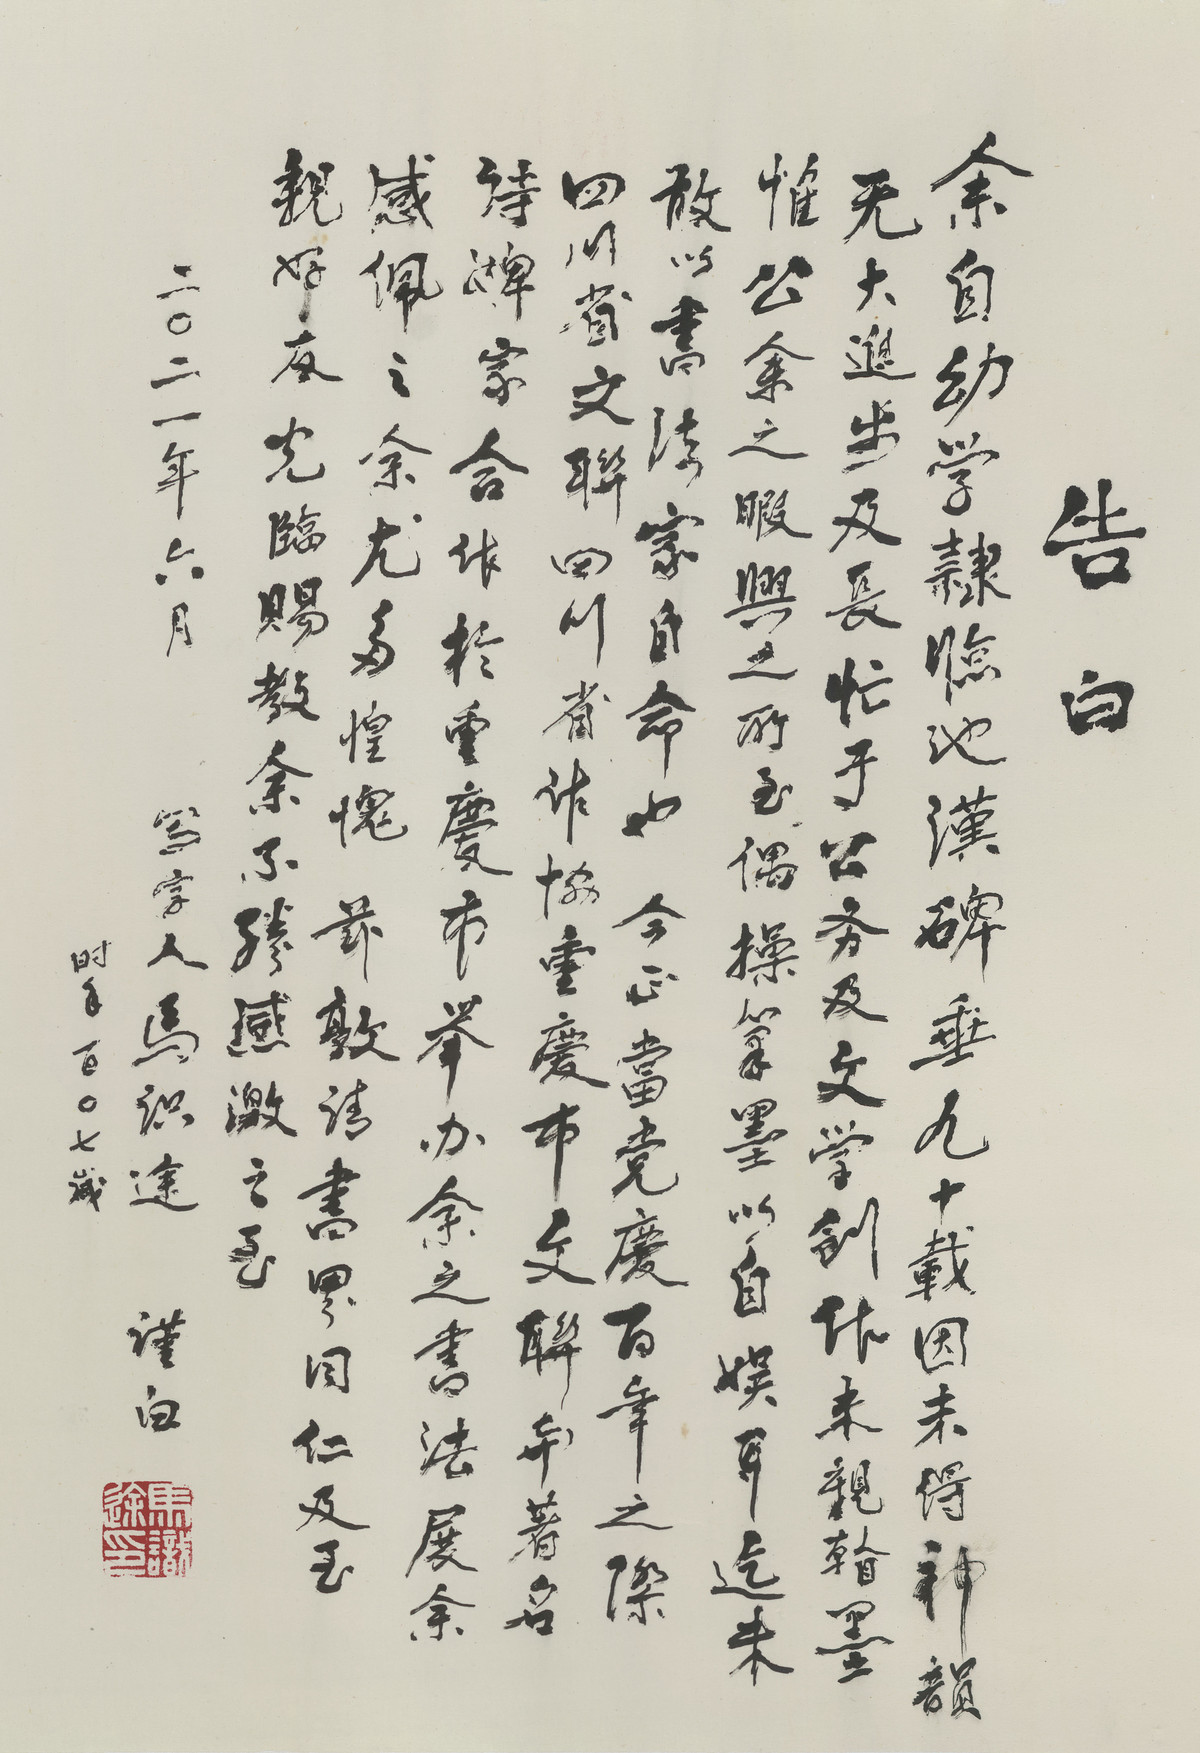 告白
余自幼学隸臨池漢碑垂九十載因未得神韻
无大進步及長忙于公务及文学創作未親翰墨
惟公余之暇興之所至偶操筆墨以自娱耳迄未
敢以書法家自命也 今正當党慶百年之際
四川省文聯四川省作協重慶市文聯和著名
詩碑家合作於重慶市举办余之書法展余
感佩之余尤多惶愧 兹敦请書界同仁及至
親好友光臨賜教余不勝感激之至
二〇二一年六月 写字人馬识途 謹白
时年百〇七歲
馬識途印